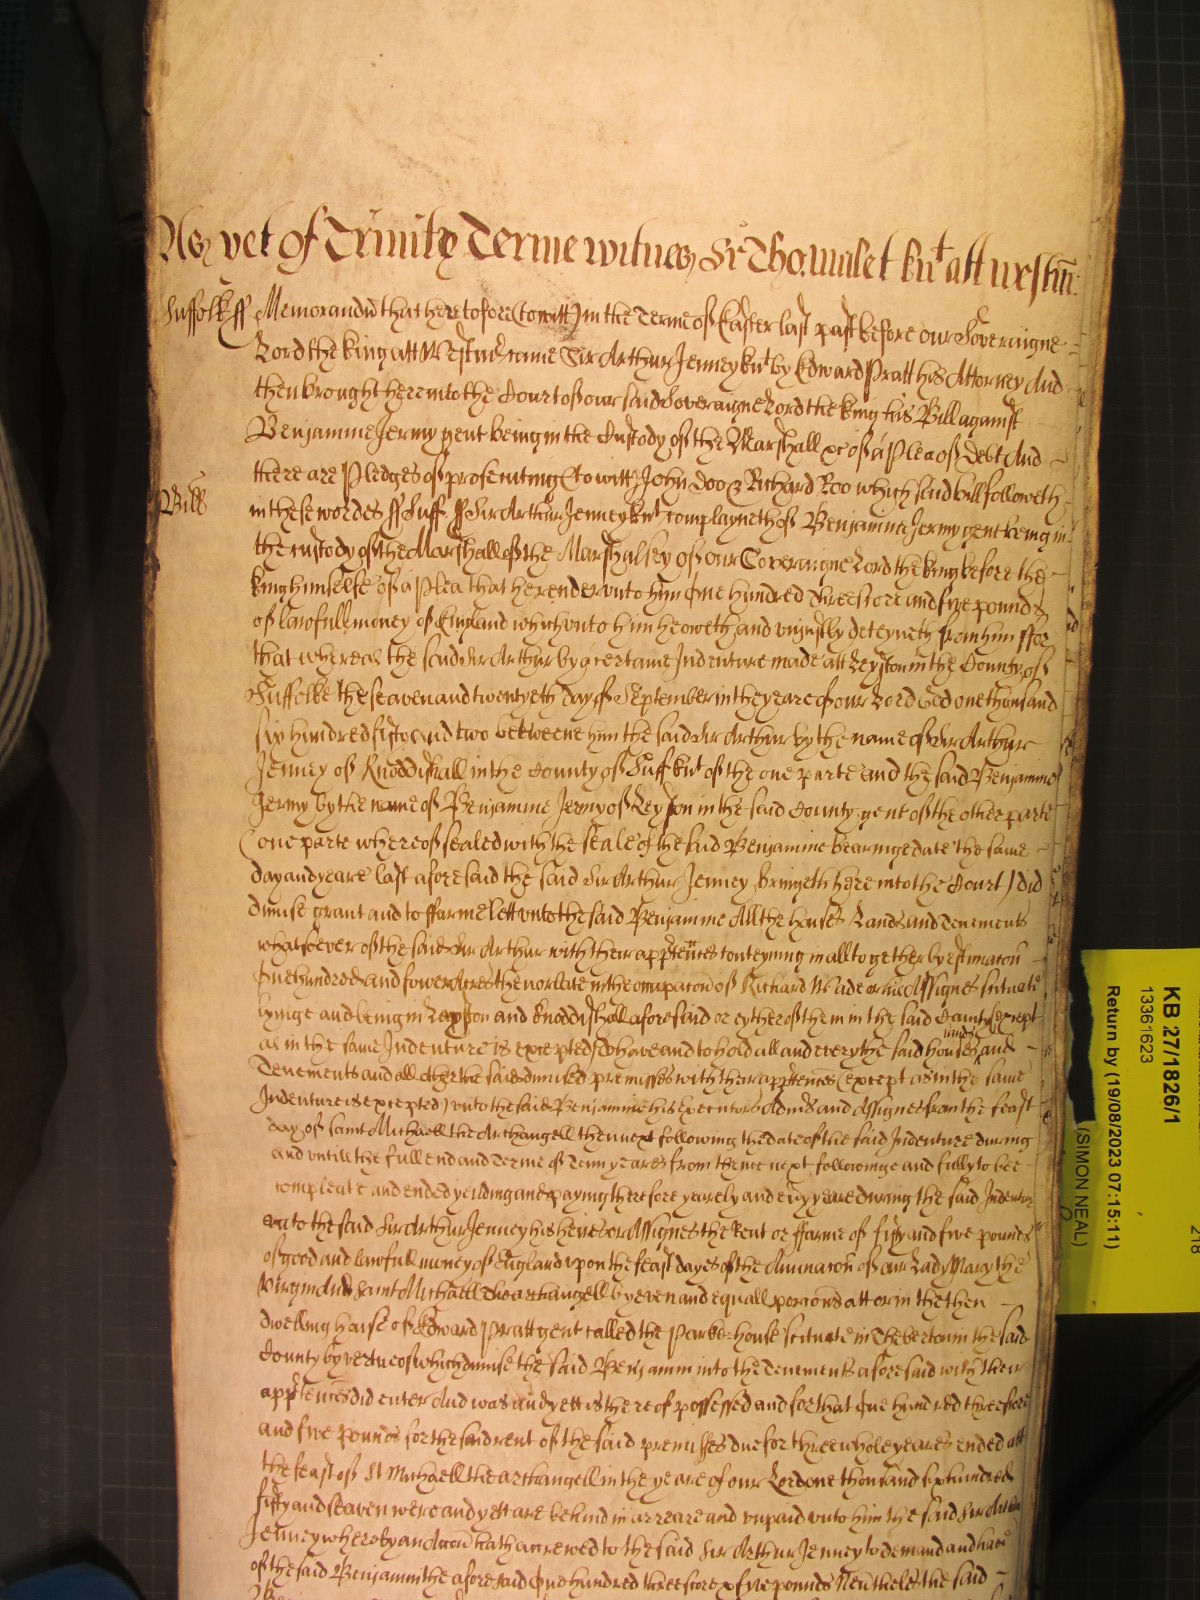 As yet of Trinity Terme witnes Sr Tho. Mallet knt att westm:
Suffolk ss Memorandu that heretofore (to witt) in the Terme of Easter last past before our Soveraigne
Lord the king att Westmr came Sir Arthur Jenney knt by Edward Pratt his Attorney And
then brought here into the Court of our said Soveraigne Lord the king his Bill against
Benjamine Jermy gent being in the Custody of the Marshall &c of a Plea of Debt And
there are Pledges of prosecuting (to witt) John Doo & Richard Roo which said bill followeth
Bill
in these wordes ss Suff ss Sir Arthur Jenney knt complayneth of Benjamine Jermy gent being in
the custody of the Marshall of the Marshalsey of our Soveraigne Lord the king before the
king himselfe of a Plea that he render unto him One hundred threescore and five pounds
of lawfull money of England which unto him he oweth and unjustly deteyneth from him ffor
that whereas the said Sir Arthur by a certaine Indenture made att Leyston in the County of
Suffolke the seaven and twentyeth day of September in the yeare of our Lord God one thousand
six hundred fifty and two betweene him the said Sir Arthur by the name of Sir Arthur
Jenney of Knoddishall in the County of Suff knt of the one parte and the said Benjamine
Jermy by the name of Benjamine Jermy of Leyston in the said County gent of the other parte
(one parte whereof sealed with the seale of the said Benjamine bearinge date the same
day and yeare last aforesaid the said Sir Arthur Jenney bringeth here into the Court) did
dimise grant and to ffarme lett unto the said Benjamine All the houses Lands and Tenements
whatsoever of the said Sir Arthur with their apptences conteyning in all together by estimacon
One hundred and fower Acres then or late in the occupacon of Richard Wade or his Assignes situate
lyinge and being in Leyston and Knoddishall aforesaid or eyther of them in the said County (except
as in the same Indenture is excepted) To have and to hold all and every the said houses lands and
Tenements and all other the said dimised premisses with their apptences (except as in the same
Indenture is excepted) unto the said Benjamine his Executors Admrs and Assignes from the feast
day of saint Michaell the Archangell then next following the date of the said Indenture during
and untill the full end and Terme of Tenn yeares from thence next followinge and fully to bee
compleate and ended yeilding and paying therefore yearely and every yeare during the said Indenture
unto the said Sir Arthur Jenney his heires or Assignes the Rent or ffarme of fifty and five pounds
of good and lawfull money of England upon the feast dayes of the Annunacon of our Lady Mary the
Virgin and Saint Michaell the archangell by even and equall porcons att or in the then
dwelling house of Edward Pratt gent called the Parke-house scituate in Theberton in the said
County by vertue of which dimise the said Benjamin into the Tenements aforesaid with their
apptences did enter And was and yett is thereof possessed and for that One hundred threescore
and five pounds for the said rent of the said premisses due for three whole yeares ended att
the feast of St Michaell the archangell in the yeare of our Lord one thousand six hundred
fifty and seaven were and yett are behind in arreare and unpaid unto him the said Sir Arthur
Jenney whereby an Accon hath accrewed to the said Sir Arthur Jenney to demand and have
of the said Benjamin the aforesaid One hundred threescore & five pounds Neutheles the said
KB 27/1826/1
13361623
Return by (19/08/2023 07:15:11)
(SIMON NEAL)